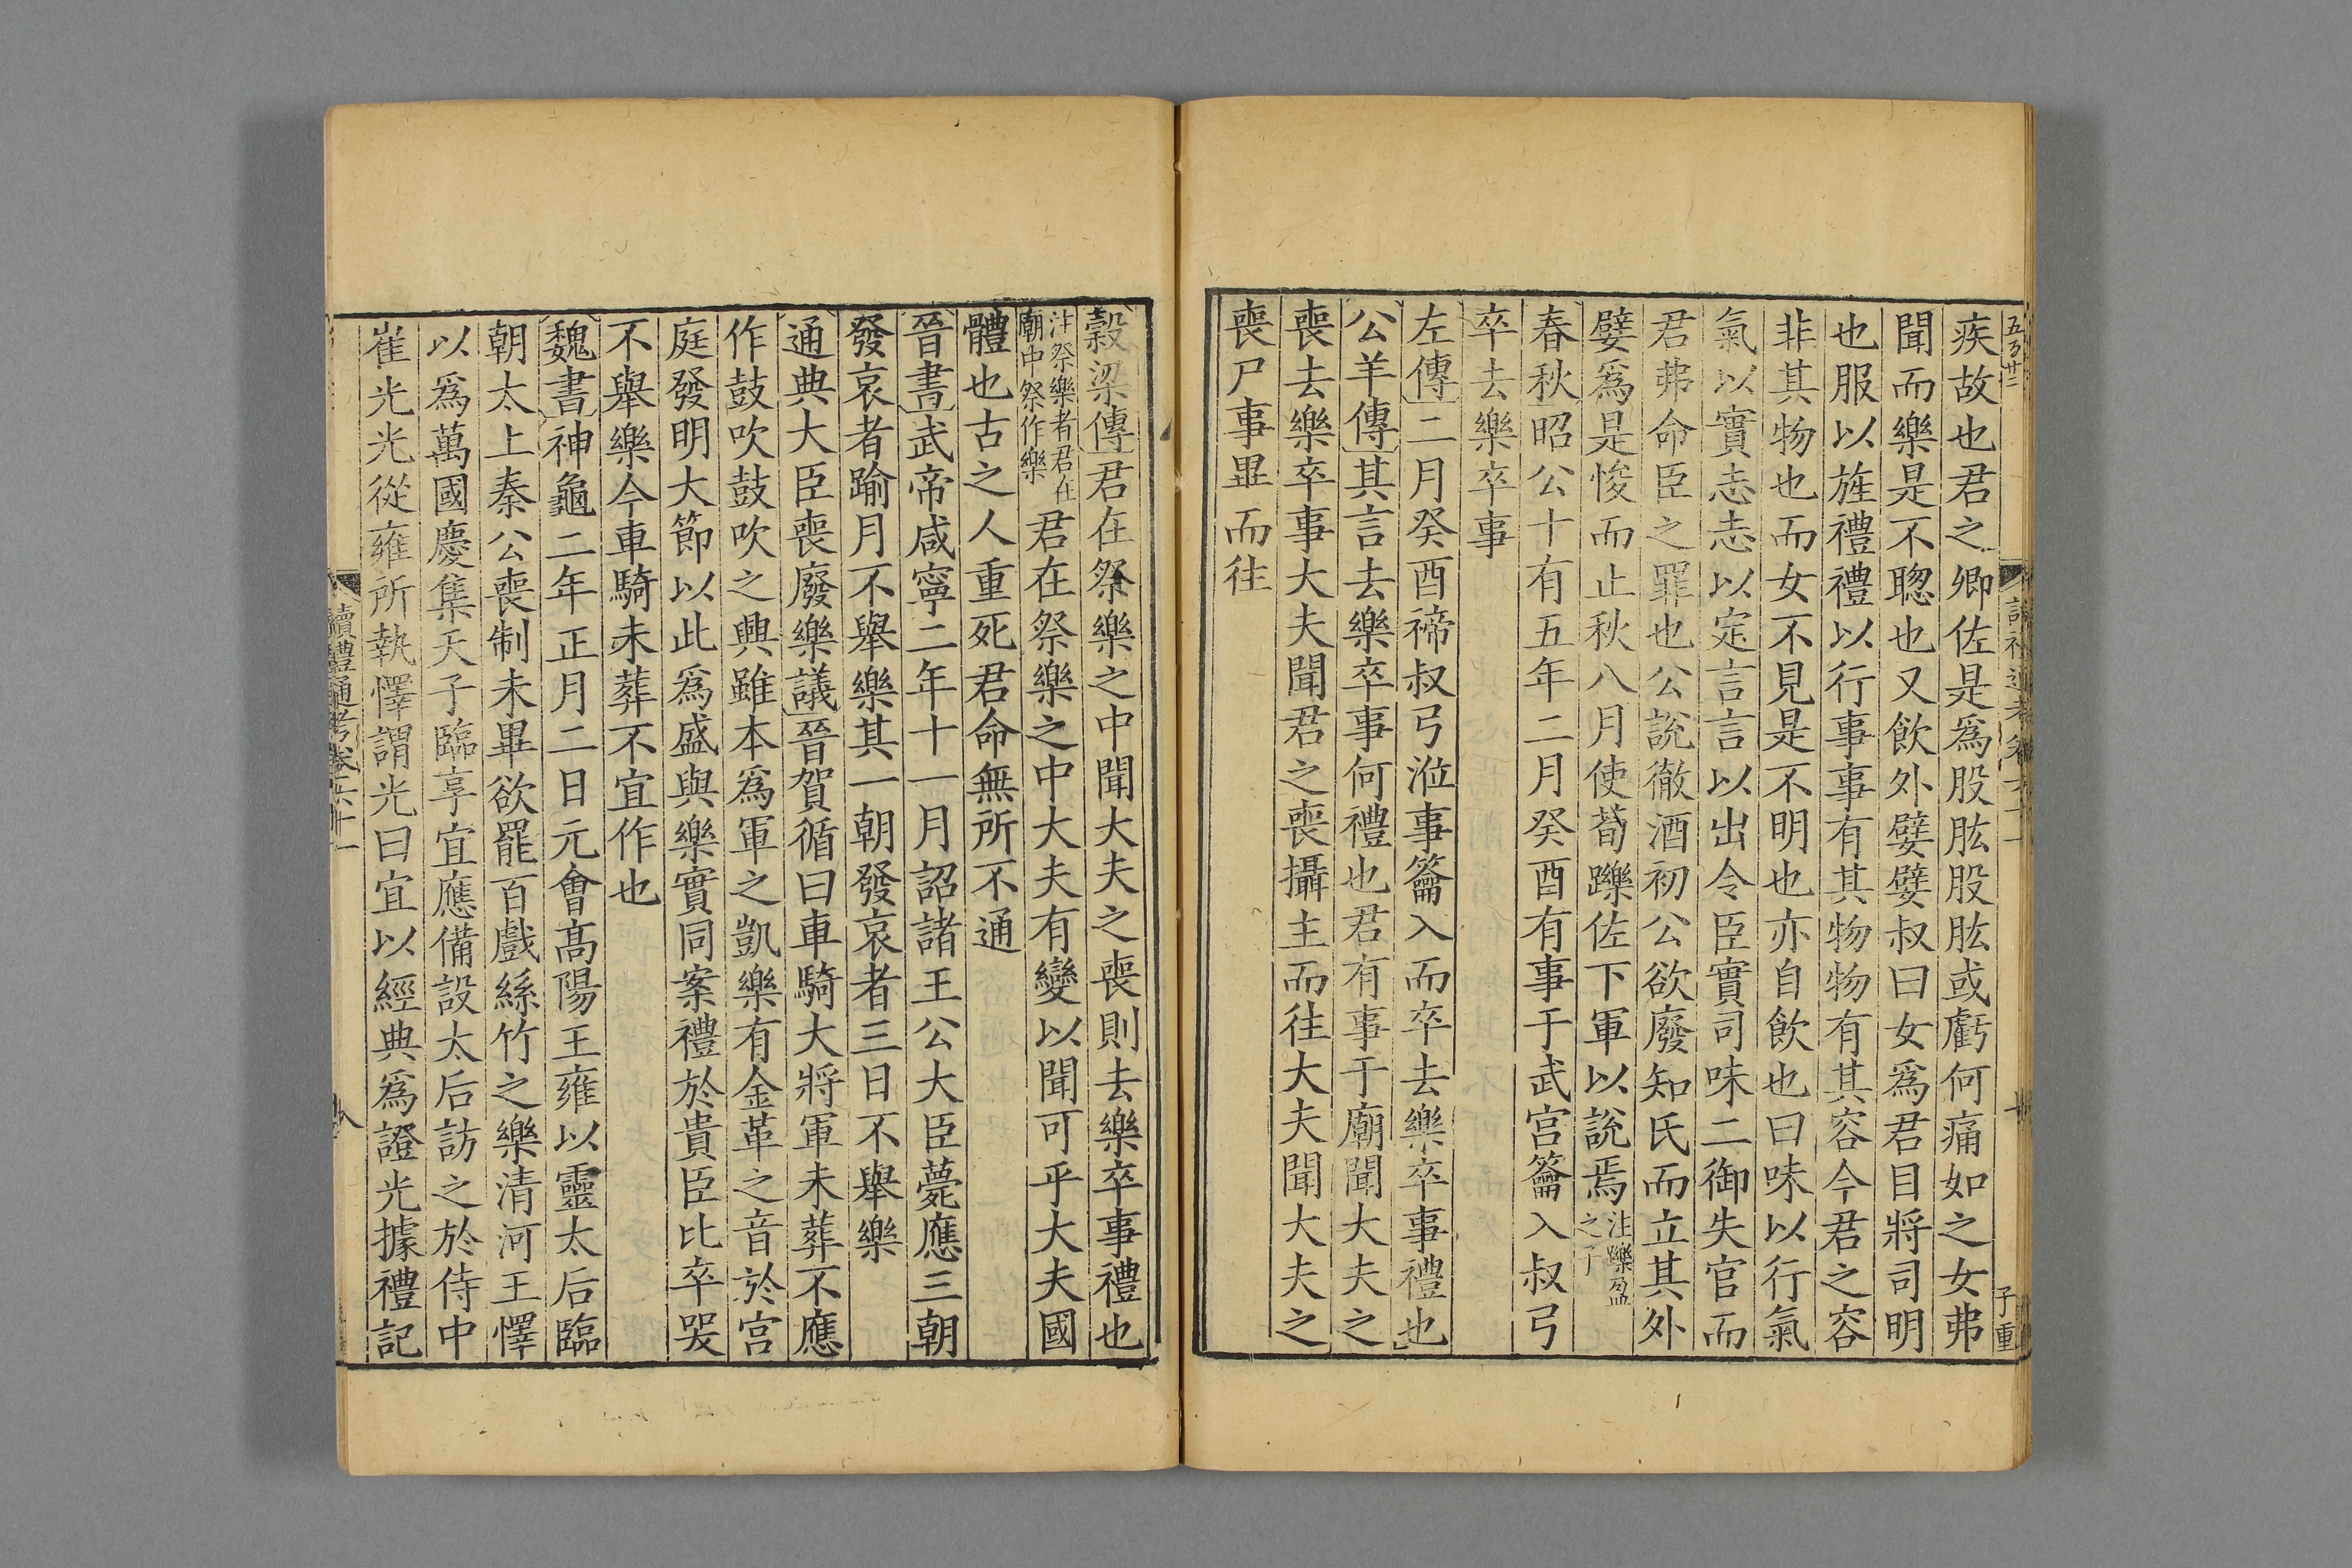 疾故也君之卿佐是爲股肱股肱或虧何痛如之女弗
聞而樂是不聦也又飲外嬖嬖叔曰女爲君目將司明
也服以旌禮禮以行事事有其物物有其容今君之容
非其物也而女不見是不明也亦自飲也曰味以行氣
氣以實志志以定言言以出令臣實司味二御失官而
君弗命臣之罪也公說徹酒初公欲廢知氏而立其外
嬖爲是悛而止秋八月使荀躒佐下軍以說焉
注躒盈
之子
春秋昭公十有五年二月癸酉有事于武宮籥入叔弓
卒去樂卒事
左傳二月癸酉禘叔弓涖事籥入而卒去樂卒事禮也
公羊傳其言去樂卒事何禮也君有事于廟聞大夫之
喪去樂卒事大夫聞君之喪攝主而往大夫聞大夫之
喪尸事畢而往
穀梁傳君在祭樂之中聞大夫之喪則去樂卒事禮也
注祭樂者君在
廟中祭作樂
君在祭樂之中大夫有變以聞可乎大夫國
體也古之人重死君命無所不通
晉書武帝咸寧二年十一月詔諸王公大臣薨應三朝
發哀者踰月不舉樂其一朝發哀者三日不舉樂
通典大臣喪廢樂議晉賀循曰車騎大將軍未葬不應
作鼓吹鼓吹之興雖本爲軍之凱樂有金革之音於宮
庭發明大節以此爲盛與樂實同案禮於貴臣比卒哭
不舉樂今車騎未葬不宜作也
魏書神龜二年正月二日元會高陽王雍以靈太后臨
朝太上秦公喪制未畢欲罷百戲絲竹之樂清河王懌
以爲萬國慶集天子臨享宜應備設太后訪之於侍中
崔光光從雍所執懌謂光曰宜以經典爲證光據禮記
讀禮通考卷六十一
八
五百廿二
子重